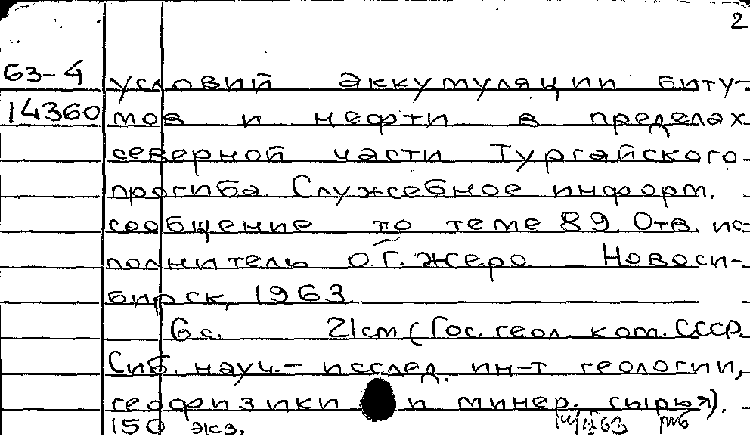 2
63-4 условий аккумуляции биту-
14360 мов и нефти в пределах
северной части Тургайского
прогиба. Служебное информ.
сообщение по теме 89. Отв. ис-
полнитель О.Г. Жеро Новоси-
бирск, 1963
6 с. 21 см (Гос. геол. ком. СССР.
Сиб. науч.- исслед. ин-т геологии,
геофизики и минер. сырья).
150 экз.